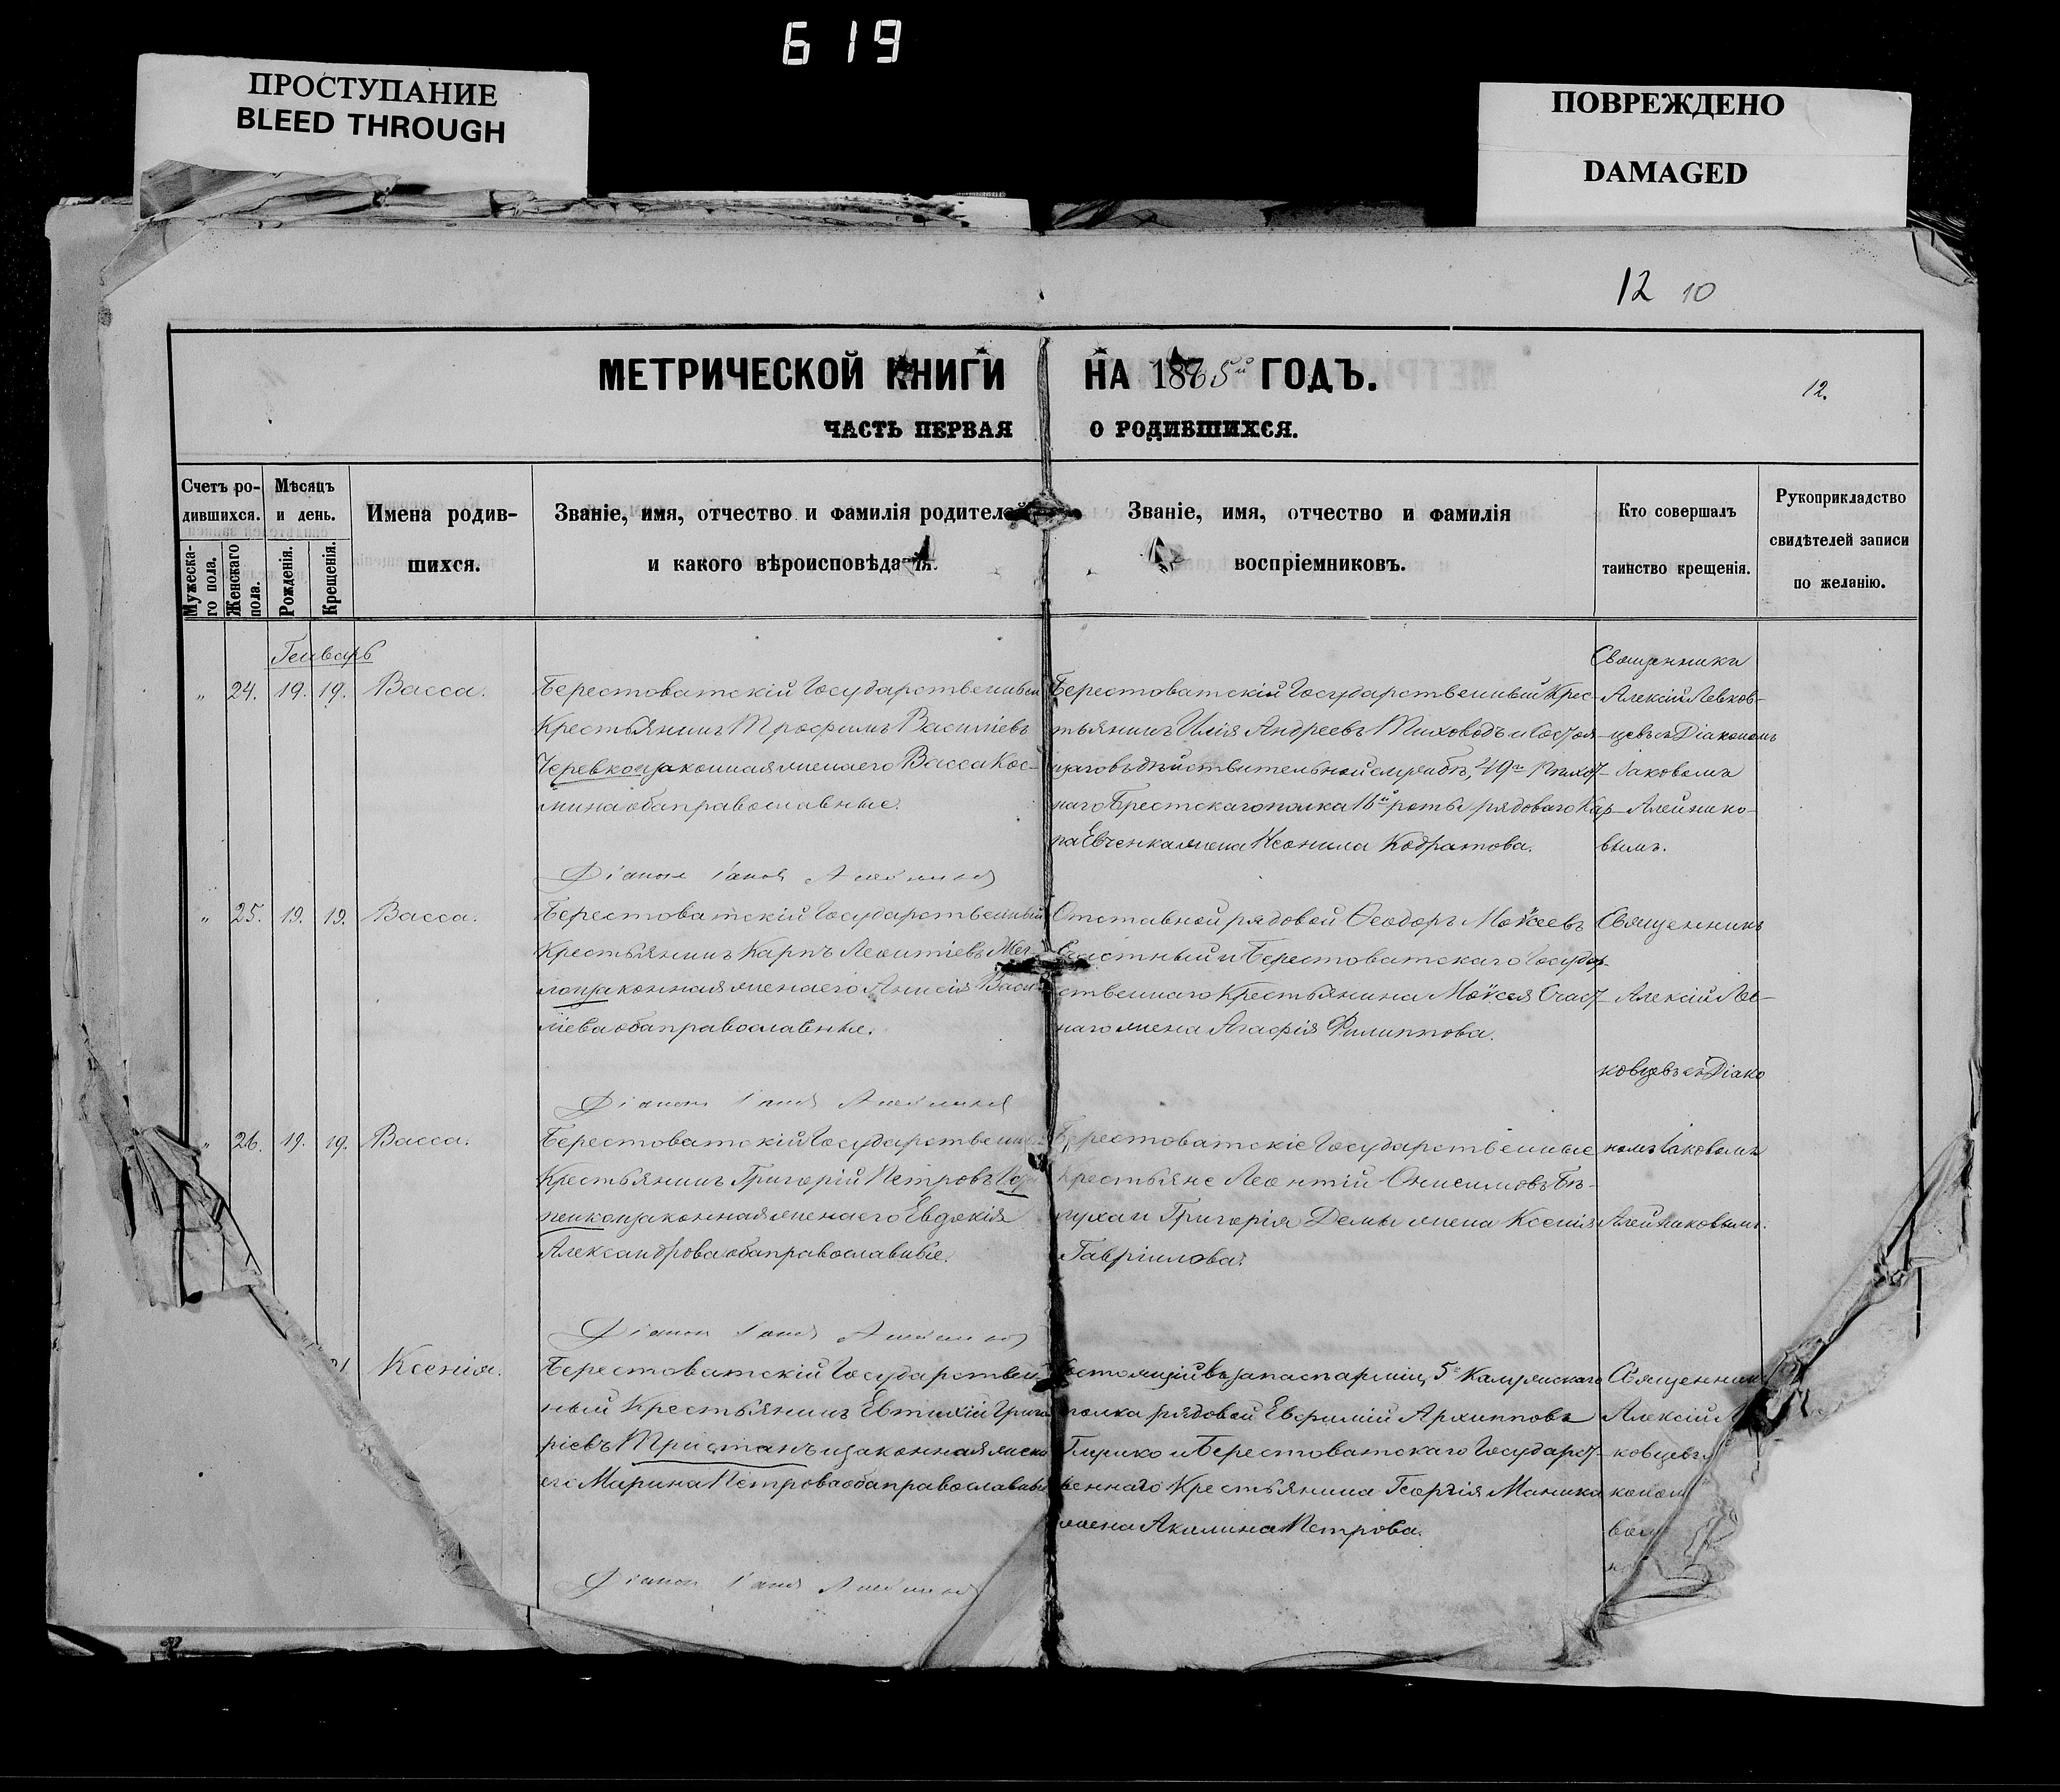 619
ПРОСТУПАНИЕ
BLEED THROUGH
ПОВРЕЖДЕНО
DAMAGED
12 10
МЕТРИЧЕСКОЙ КНИГИ НА 1875й ГОДЪ.
12.
ЧАСТЬ ПЕРВАЯ О РОДИВШИХСЯ.
Счетъ ро-
дившихся.
Мужеска-
го пола.
Женскаго
пола.
Мѣсяцъ
и день.
Рожденія.
Крещенія.
Имена родив-
шихся.
Званіе, имя, отчество и фамилія родителей
и какого вѣроисповѣданія.
Званіе, имя, отчество и фамилія
воспріемниковъ.
Кто совершалъ
таинство крещенія.
Рукоприкладство
свидѣтелей записи
по желанію.
Генварь
„ 24. 19. 19. Васса.
Берестоватскій Государственный
Крестьянинъ Трофимъ Василіевъ
Черевко и законная жена его Васса Кос-
мина оба православные.
Берестоватскій Государственный Крес-
тьянинъ Илія Андреевъ Тиховодъ и Состоя-
щаго въ дѣйствительной службѣ, 49го Пѣхот-
наго Брестскаго полка 16й роты рядоваго Кар-
па Евченка жена Ксонила Кодратова.
Священники
Алексій Левков-
цевъ съ Діакономъ
Іаковомъ
Алейнико-
вымъ.
Діаконъ Іаковъ Алейниковъ
„ 25. 19. 19. Васса.
Берестоватскій Государственный
Крестьянинъ Карпъ Леонтіевъ
законная жена его Анисія Васи-
ліева оба православные.
Отставной рядовой Ѳеодоръ Моѵсеевъ
Счастный и Берестоватскаго Государ-
ственнаго Крестьянина Моѵсея Счаст-
наго жена Агафія Филиппова.
Священникъ
Алексій Лев-
ковцевъ съ Діако
Діаконъ Іаковъ Алейниковъ
„ 26. 19. 19. Васса.
Берестоватскій Государственный
Крестьянинъ Григорій Петровъ
законная жена его Евдокія
Александрова оба православные.
Берестоватскіе Государственные
Крестьяне Леонтій Онисимовъ Бѣ-
луха и Григорія Демы жена Ксенія
Гавріилова.
номъ Іаковомъ
Алейниковымъ.
Діаконъ Іаковъ Алейниковъ
Ксенія.
Берестоватскій Государствен-
ный Крестьянинъ Евтихій Григо-
ріевъ Тристанъ и законная жена
его Марина Петрова оба православные
Состоящій въ запас арміи, 5го Калужскаго
полка рядовой Евфимій Архипповъ
Гирико и Берестоватскаго Государст-
веннаго Крестьянина Георгія Маника
жена Акилина Петрова.
Священник
Алексій Л
ковцевъ
коном
вом
Діаконъ Іаковъ Алейниковъ